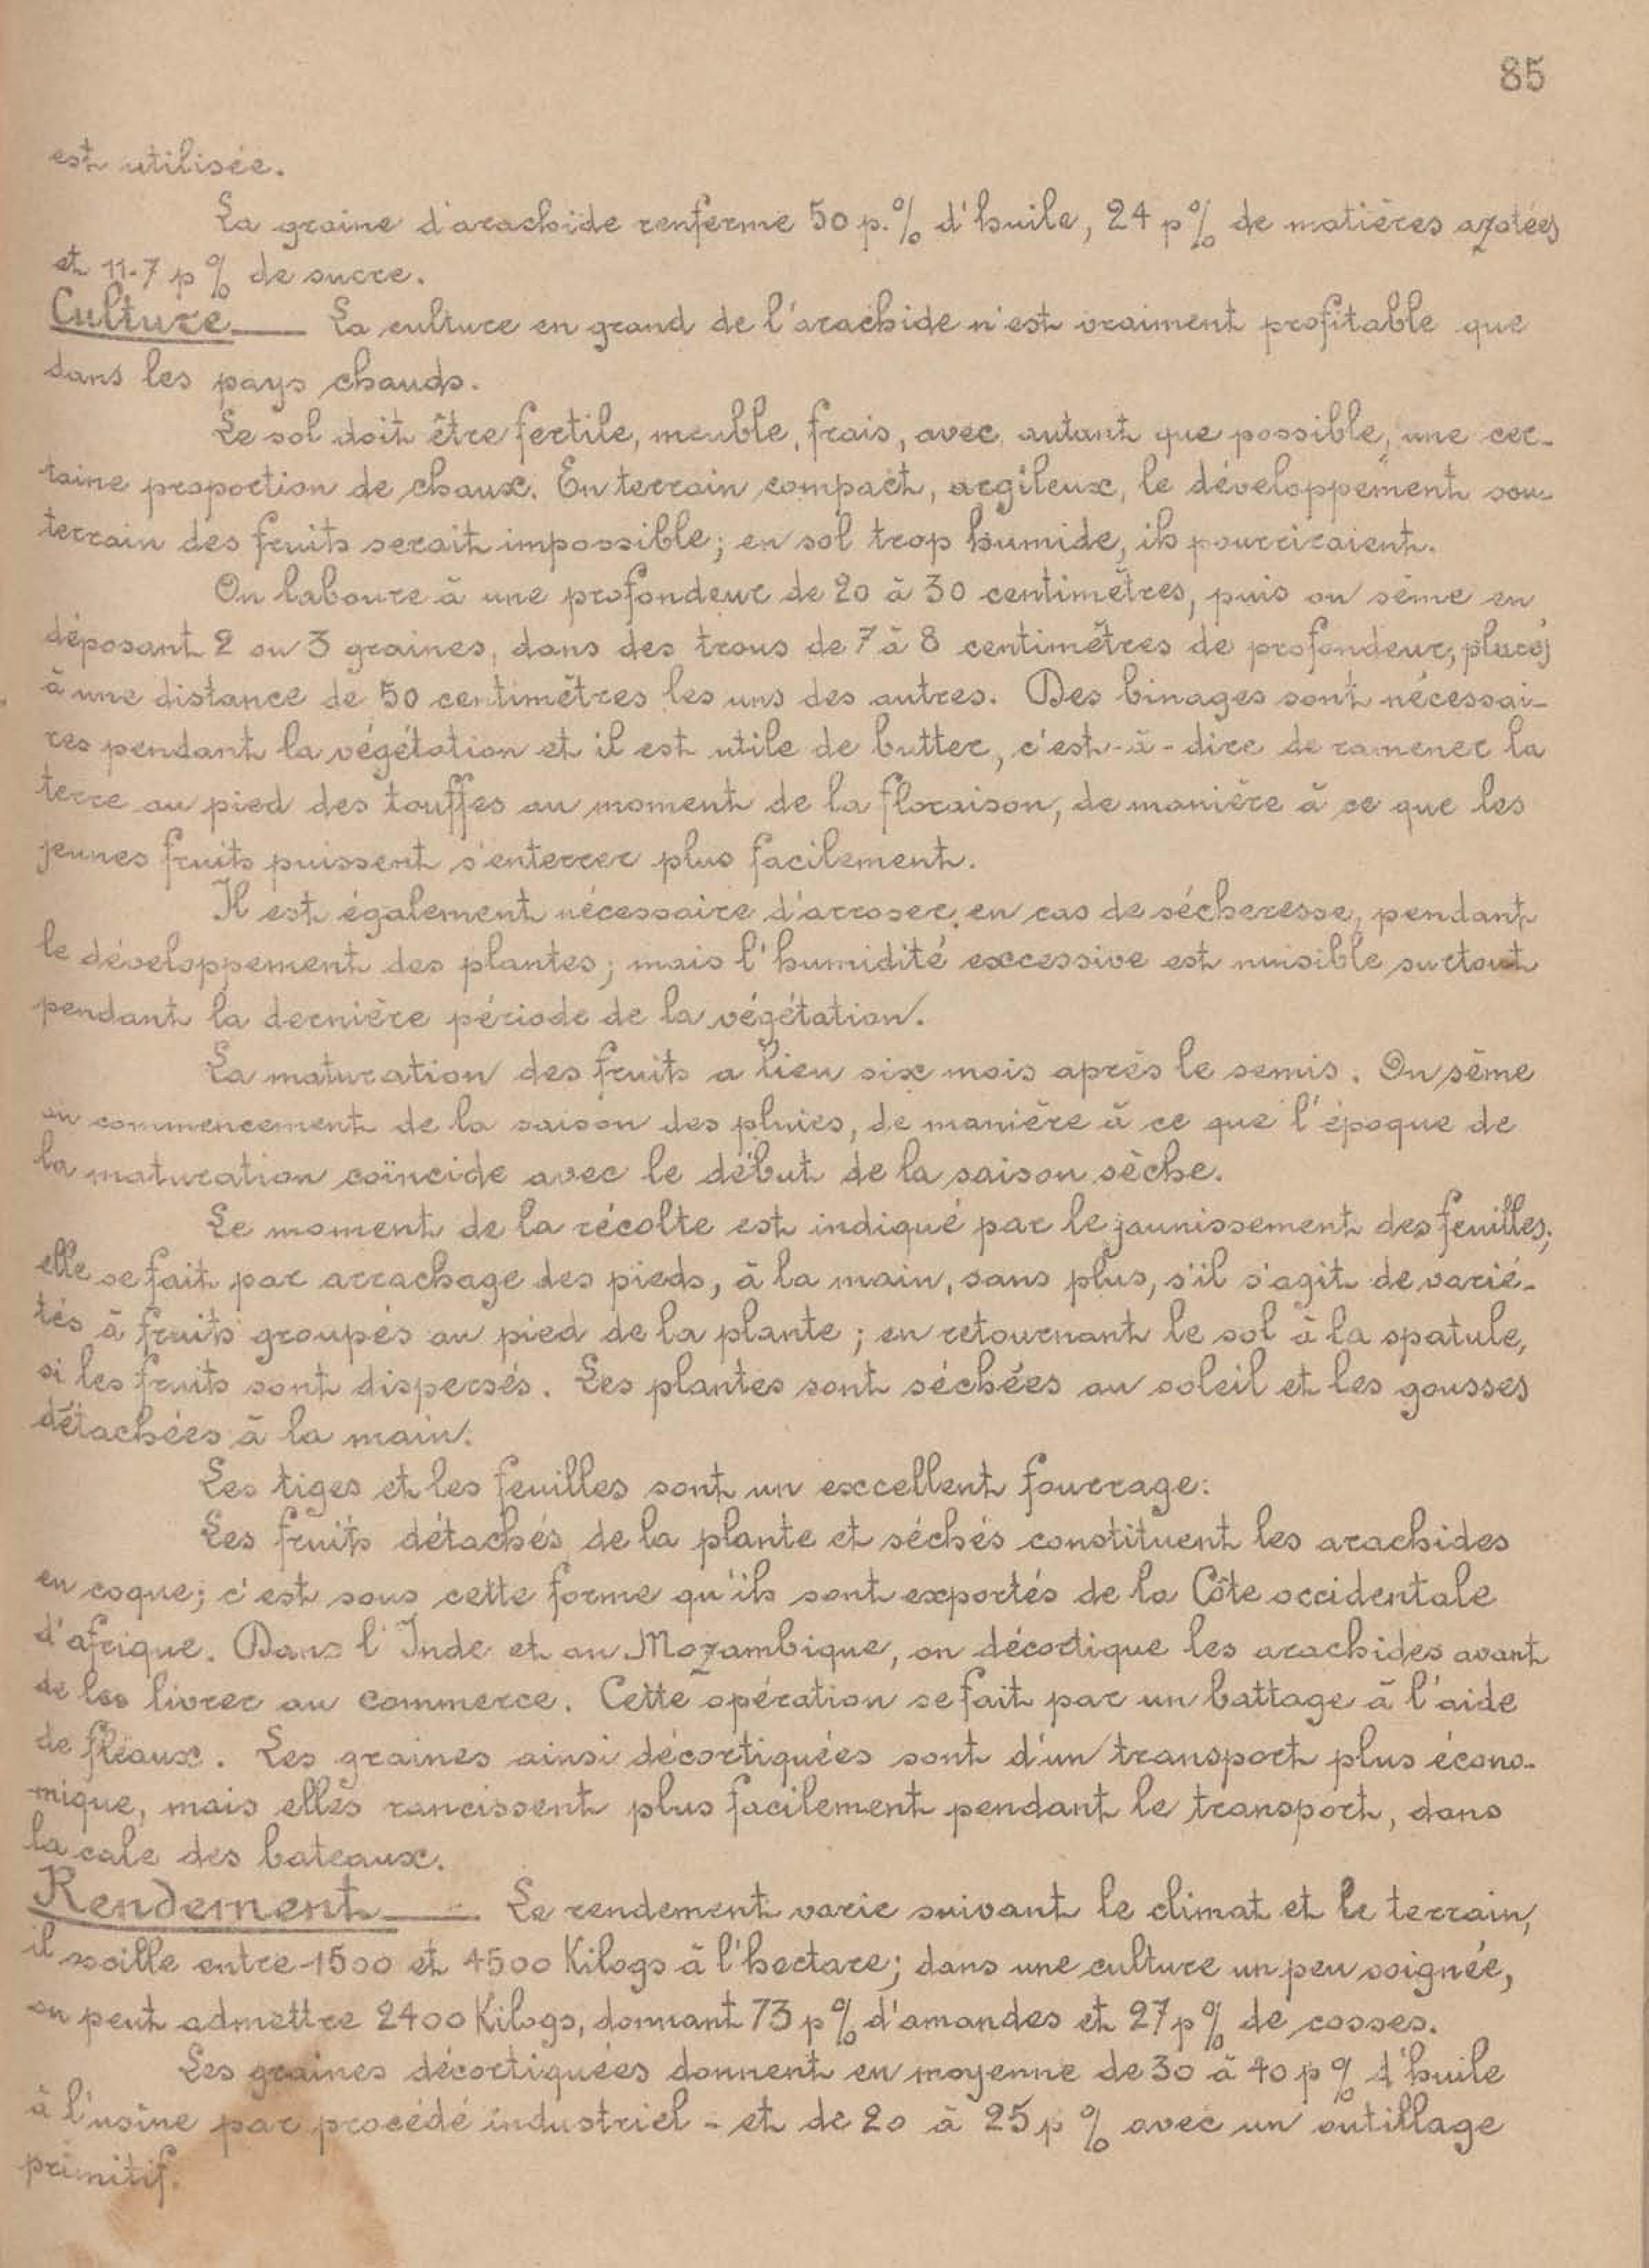 85
est utilisée.
La graine d'arachide renferme 50 p.% d'huile, 24 p % de matières azotées
et 11.7 p % de sucre.
Culture — La culture en grand de l'arachide n'est vraiment profitable que
dans les pays chauds.
Le sol doit être fertile, meuble, frais, avec, autant que possible, une cer-
taine proportion de chaux. En terrain compact, argileux, le développement sou-
terrain des fruits serait impossible; en sol trop humide, ils pourriraient.
On laboure à une profondeur de 20 à 30 centimètres, puis on sème en
déposant 2 ou 3 graines, dans des trous de 7 à 8 centimètres de profondeur, placés
à une distance de 50 centimètres les uns des autres. Des binages sont nécessai-
res pendant la végétation et il est utile de butter, c'est-à-dire de ramener la
terre au pied des touffes au moment de la floraison, de manière à ce que les
jeunes fruits puissent s'enterrer plus facilement.
Il est également nécessaire d'arroser, en cas de sécheresse, pendant
le développement des plantes; mais l'humidité excessive est nuisible surtout
pendant la dernière période de la végétation.
La maturation des fruits a lieu six mois après le semis. On sème
au commencement de la saison des pluies, de manière à ce que l'époque de
la maturation coïncide avec le début de la saison sèche.
Le moment de la récolte est indiqué par le jaunissement des feuilles;
elle se fait par arrachage des pieds, à la main, sans plus, s'il s'agit de varié-
tés à fruits groupés au pied de la plante; en retournant le sol à la spatule,
si les fruits sont dispersés. Les plantes sont séchées au soleil et les gousses
détachées à la main.
Les tiges et les feuilles sont un excellent fourrage:
Les fruits détachés de la plante et séchés constituent les arachides
en coque; c'est sous cette forme qu'ils sont exportés de la Côte occidentale
d'afrique. Dans l'Inde et au Mozambique, on décortique les arachides avant
de les livrer au commerce. Cette opération se fait par un battage à l'aide
de fléaux. Les graines ainsi décortiquées sont d'un transport plus écono-
mique, mais elles rancissent plus facilement pendant le transport, dans
la cale des bateaux.
Rendement — Le rendement varie suivant le climat et le terrain,
il oscille entre 1500 et 4500 Kilogs à l'hectare; dans une culture un peu soignée,
on peut admettre 2400 Kilogs, donnant 73 p % d'amandes et 27 p % de cosses.
Les graines décortiquées donnent en moyenne de 30 à 40 p % d'huile
à l'usine par procédé industriel - et de 20 à 25 p % avec un outillage
primitif.